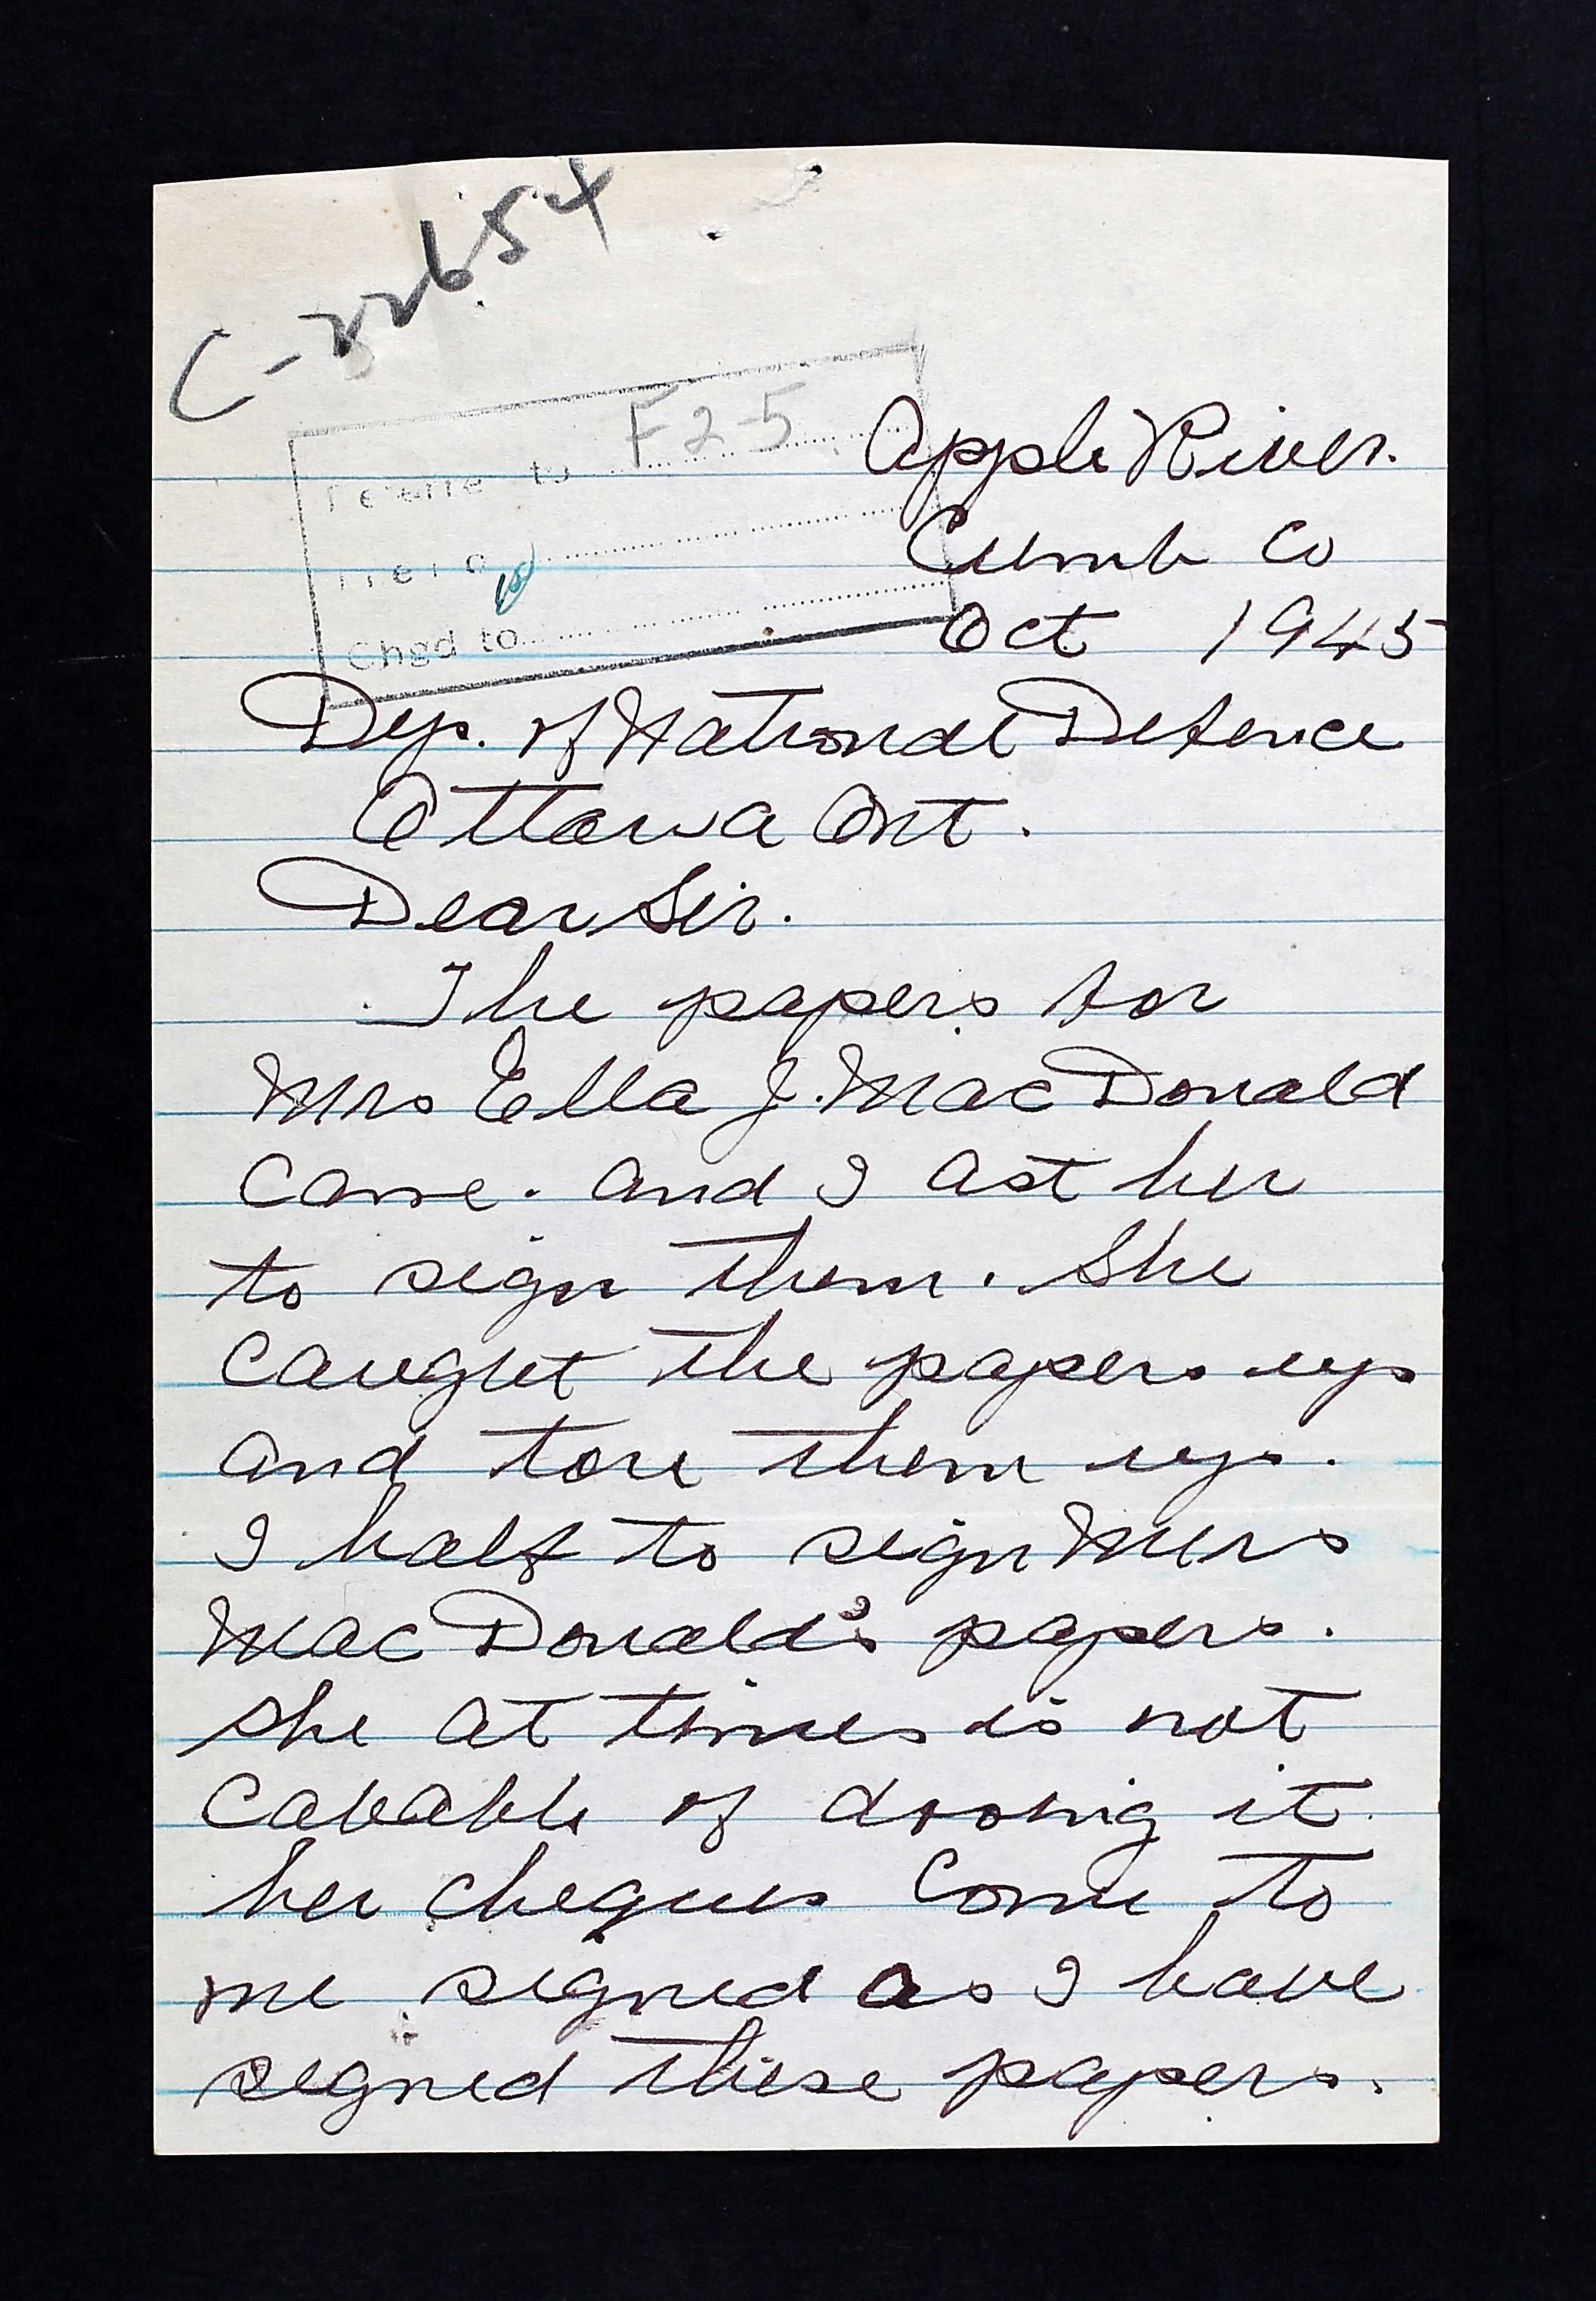 C-22654
F25
Chgd to
Apple River.
Cumb Co
Oct 1945
Dep. of National Defence
Ottawa Ont.
Dear Sir.
The papers for
Mrs Ella J. MacDonald
came. and I ast her
to sign them. She
caught the papers up
and tore them up.
I half to sign Mrs
MacDonald's papers.
she at times is not
cabable of dooing it
her cheques come to
me signed as I have
signed these papers.